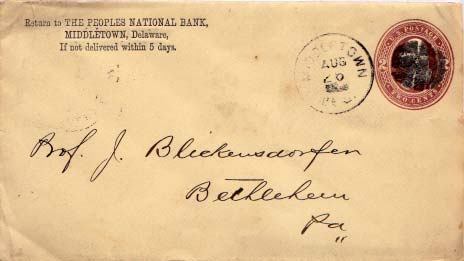 Return to THE PEOPLES NATIONAL BANK,
MIDDLETOWN, Delaware,
If not delivered within 5 days.
MIDDLETOWN
AUG
26
DEL.
U.S. POSTAGE
TWO CENTS
Prof. J. Blickensdorfer
Bethlehem
Pa